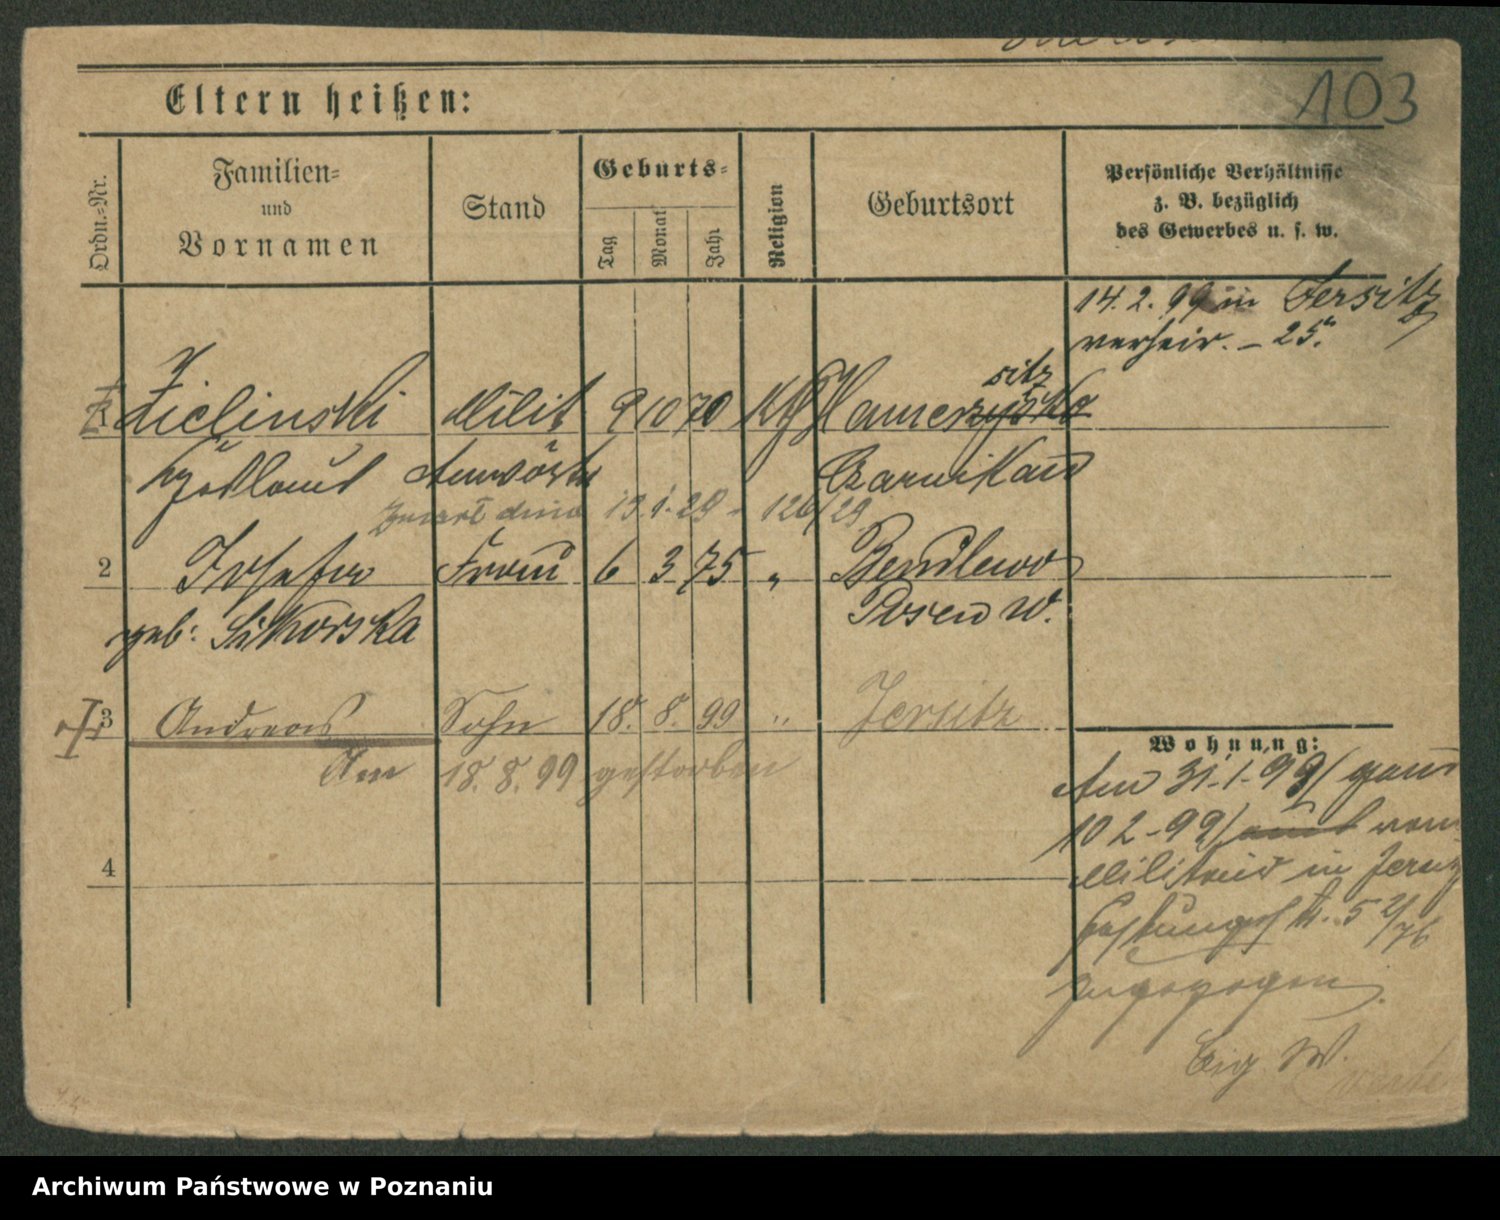 103
Eltern heißen:
Ordn.-Nr.
Familien-
und
Vornamen
Stand
Geburts-
Tag
Monat
Jahr
Religion
Geburtsort
Persönliche Verhältnisse
z. B. bezüglich
des Gewerbes u. s. w.
14. 2. 99 in Jersitz
verheir. – 25.
sitz
1 Zielinski Milit 9 10 70 Kth Hamerzysko
Anwärter Czarnikau
13.1.29 - 126/29
2 Josefa Frau 6 3 75 „ Bendlewo
geb: Sikorska Posen W.
3 Andreas Sohn 18. 8. 99 „ Jersitz
Am 18. 8. 99 gestorben
4
Wohnung:
Am 31.1.99/
10 2-99/ vom
Militair in Jersitz
5
zugezogen.
W.
Archiwum Państwowe w Poznaniu